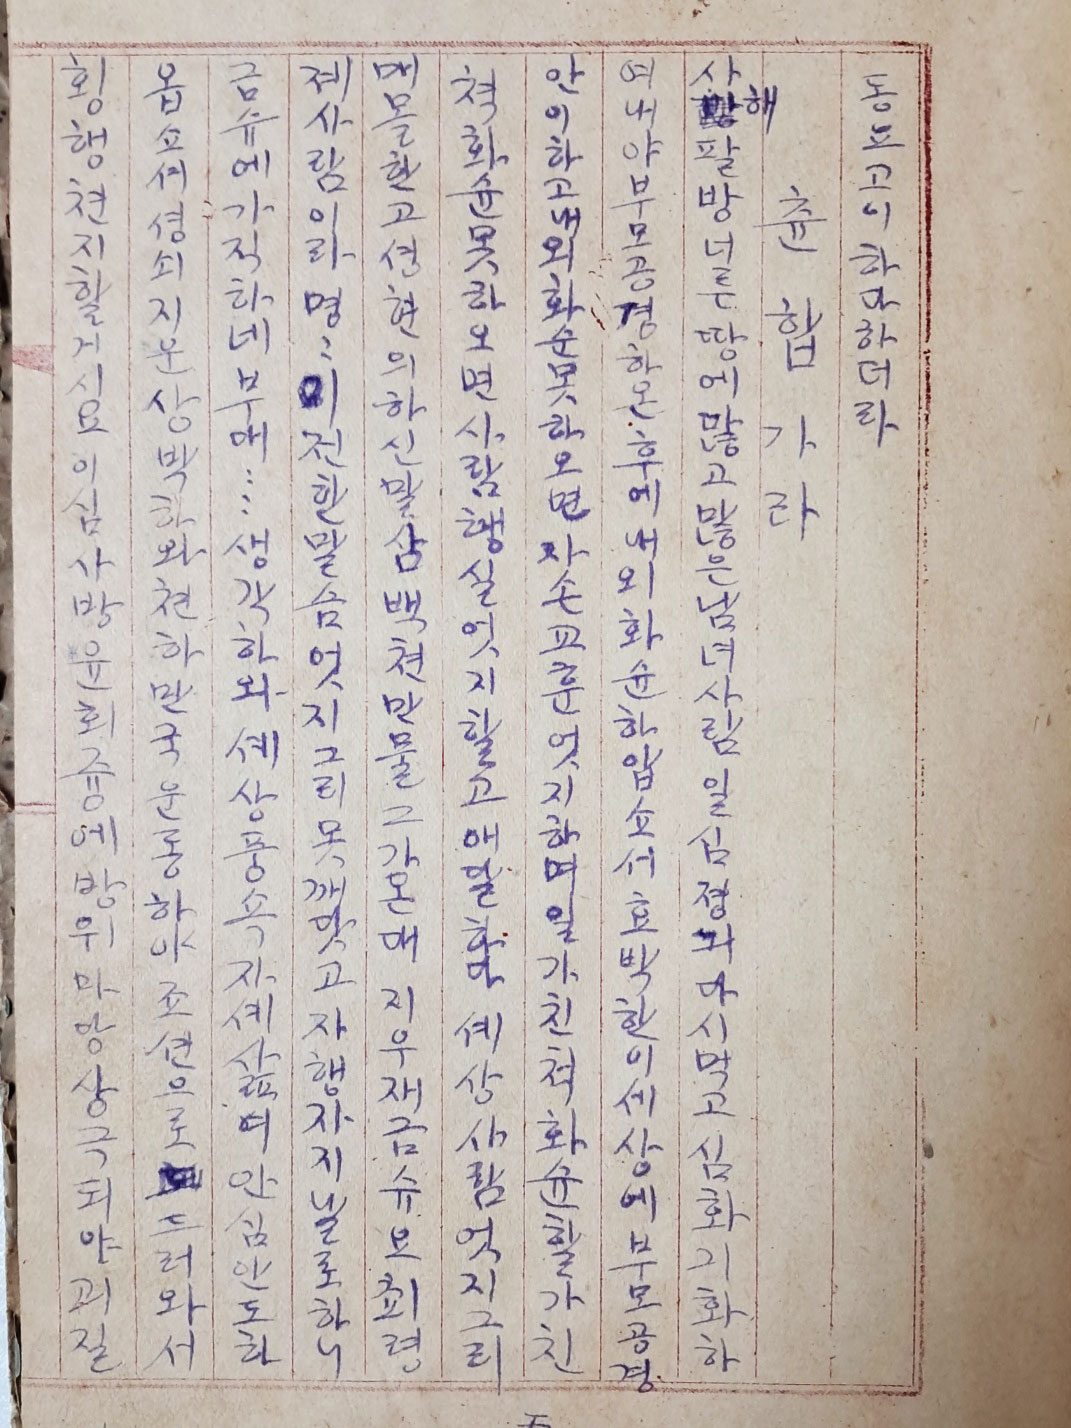 동포고이하 락하더라
춘 합 가 라
사해팔방 더루 람의 많고 많은 남녀 사람 일심 정의 아시고 먹고 심화 기화하
여 보아 부모 공경 하온 후의 노의 화순 하압소서 효박한 이 세상의 부모 공경
안의하고 노의 화순 못하오면 자손 교훈 엇지 하며 일가친척 화순 할가 친
척 화순 못하오면 사람 행실 엇지 할고 애달하다 세상 사람 엇지 그리
매몰한고 선현의 하신 말삼 백천만물 그 가온대 지우재 금수요 최령
재 사람이라 명〻이 전한 말슴 엇지 그리 못 깨닷고 자행자지 날로 하니
금수에 가직하데 부대〻〻 생각하와 세상 풍속 자세 살펴 안심 온도 하
옵소서 생죄지운 상박하와 천하 만국 운동하야 조선으로 드러와서
횡행천지 할 거시요 의심사방 유회 중에 방위 안마 상극되야 괴질
五